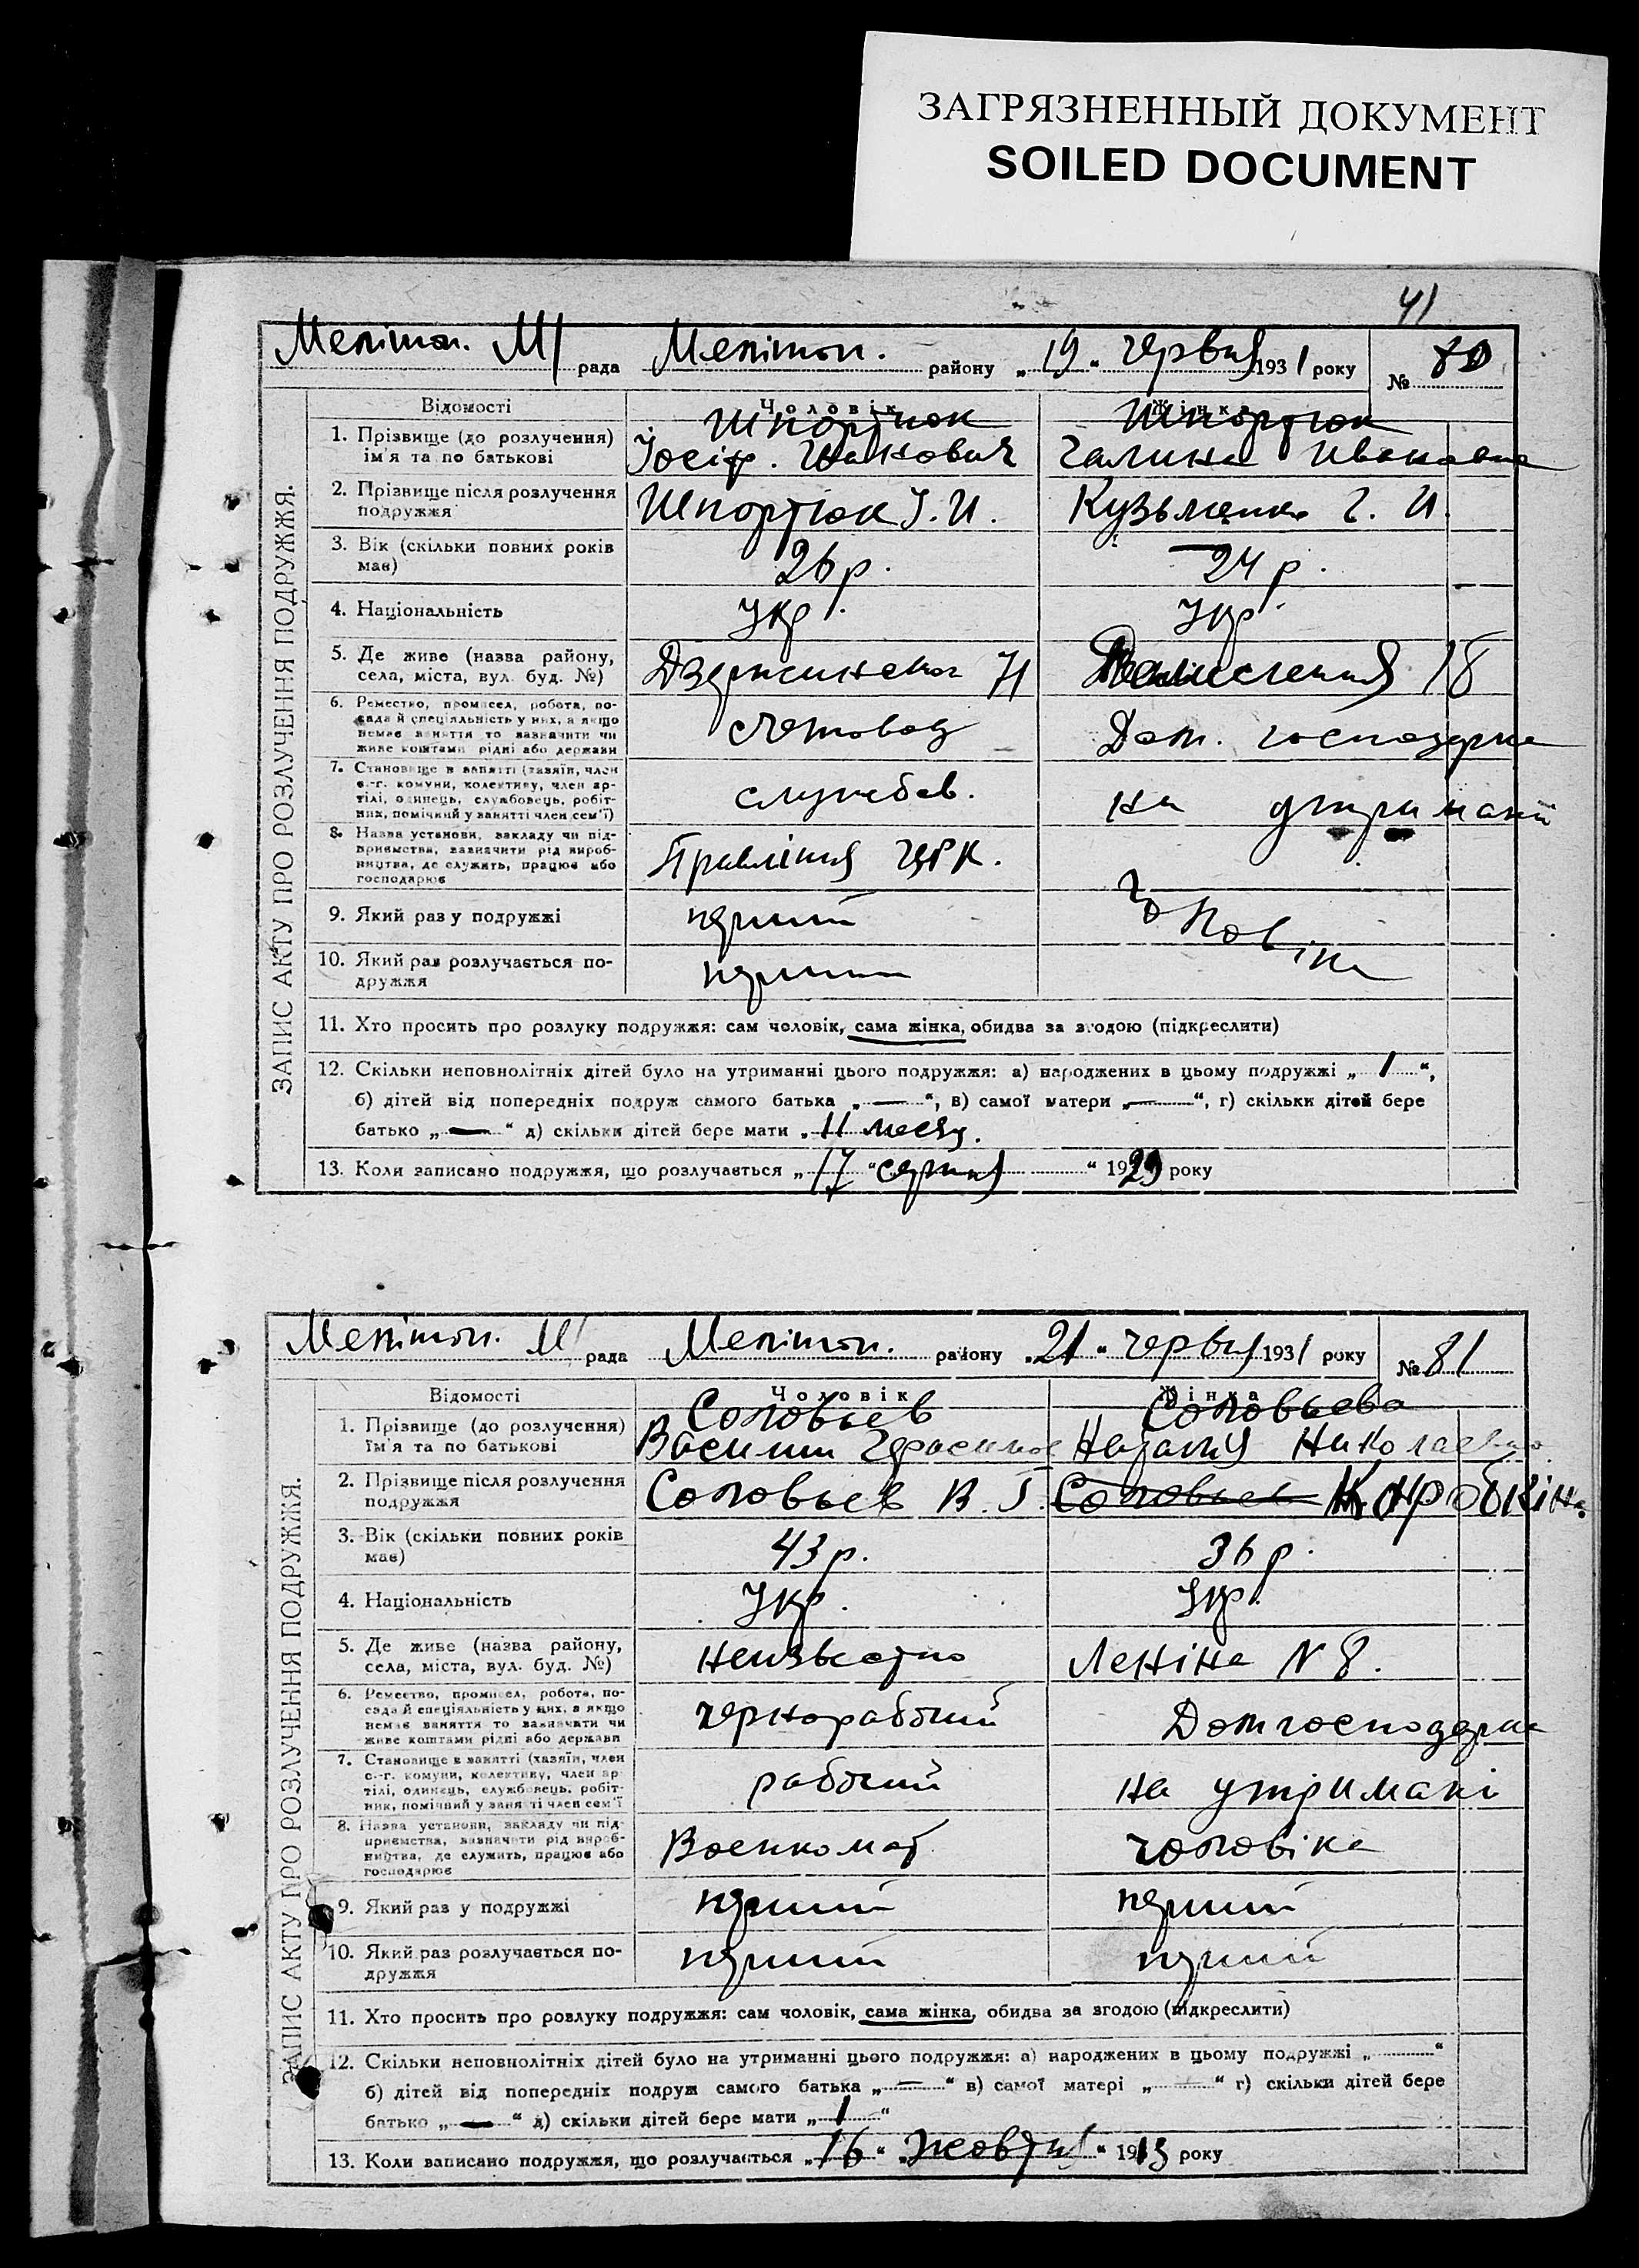 ЗАГРЯЗНЕННЫЙ ДОКУМЕНТ
SOILED DOCUMENT
41
Меліт. М/ рада Меліт. району „19“ червня 1931 року № 80
ЗАПИС АКТУ ПРО РОЗЛУЧЕННЯ ПОДРУЖЖЯ.
Відомості Чоловік Жінка
Шпортюк Шпортюк
1. Прізвище (до розлучення) ім'я та по батькові Йосіф. Іванович Галина Ивановна
2. Прізвище після розлучення подружжя Шпортюк Й. И. Кузьменко Г. И.
3. Вік (скільки повних років має) 26 р. 24 р.
4. Національність Укр. Укр.
5. Де живе (назва району, села, міста, вул. буд. №) Дзержинского 71 18
6. Ремество, промисел, робота, посада й спеціяльність у них, а якщо немає заняття то зазначити чи живе коштами рідні або держави счетовод Дом. господарка
7. Становище в занятті (хазяїн, член с.-г. комуни, колективу, член артілі, одинець, службовець, робітник, помічний у занятті член сем'ї) службов. на утриманії
8. Назва установи, закладу чи підприємства, зазначити рід виробництва, де служить, працює або господарює Правління ЦРК. чоловіка
9. Який раз у подружжі перший
10. Який раз розлучається подружжя перший
11. Хто просить про розлуку подружжя: сам чоловік, сама жінка, обидва за згодою (підкреслити)
12. Скільки неповнолітніх дітей було на утриманні цього подружжя: а) народжених в цьому подружжі „ 1 “,
б) дітей від попередніх подруж самого батька „ — “, в) самої матери „ — “, г) скільки дітей бере
батько „ — “ д) скільки дітей бере мати „ 11 месяц.
13. Коли записано подружжя, що розлучається „ 17 “ серпня “ 1929 року
Меліт. М/ рада Меліт. району „21“ червня 1931 року № 81
ЗАПИС АКТУ ПРО РОЗЛУЧЕННЯ ПОДРУЖЖЯ.
Відомості Чоловік Жінка
Соловьев Соловьева
1. Прізвище (до розлучення) ім'я та по батькові Василий Герасимов Наталія Николаевна
2. Прізвище після розлучення подружжя Соловьев В. Г. Соловьев Коробкіна
3. Вік (скільки повних років має) 43 р. 36 р.
4. Національність Укр. Укр.
5. Де живе (назва району, села, міста, вул. буд. №) неизвестно Леніна N 8.
6. Ремество, промисел, робота, посада й спеціяльність у них, а якщо немає заняття то зазначити чи живе коштами рідні або держави чернорабочий Домгосподарка
7. Становище в занятті (хазяїн, член с.-г. комуни, колективу, член артілі, одинець, службовець, робітник, помічний у занятті член сем'ї рабочий на утримані
8. Назва установи, закладу чи підприємства, зазначити рід виробництва, де служить, працює або господарює Военкомат чоловіка
9. Який раз у подружжі перший перший
10. Який раз розлучається подружжя перший перший
11. Хто просить про розлуку подружжя: сам чоловік, сама жінка, обидва за згодою (підкреслити)
12. Скільки неповнолітніх дітей було на утриманні цього подружжя: а) народжених в цьому подружжі „ “
б) дітей від попередніх подруж самого батька „ — “ в) самої матері „ — “ г) скільки дітей бере
батько „ — “ д) скільки дітей бере мати „ 1 “
13. Коли записано подружжя, що розлучається „ 16 “ „ жовтня “ 1913 року